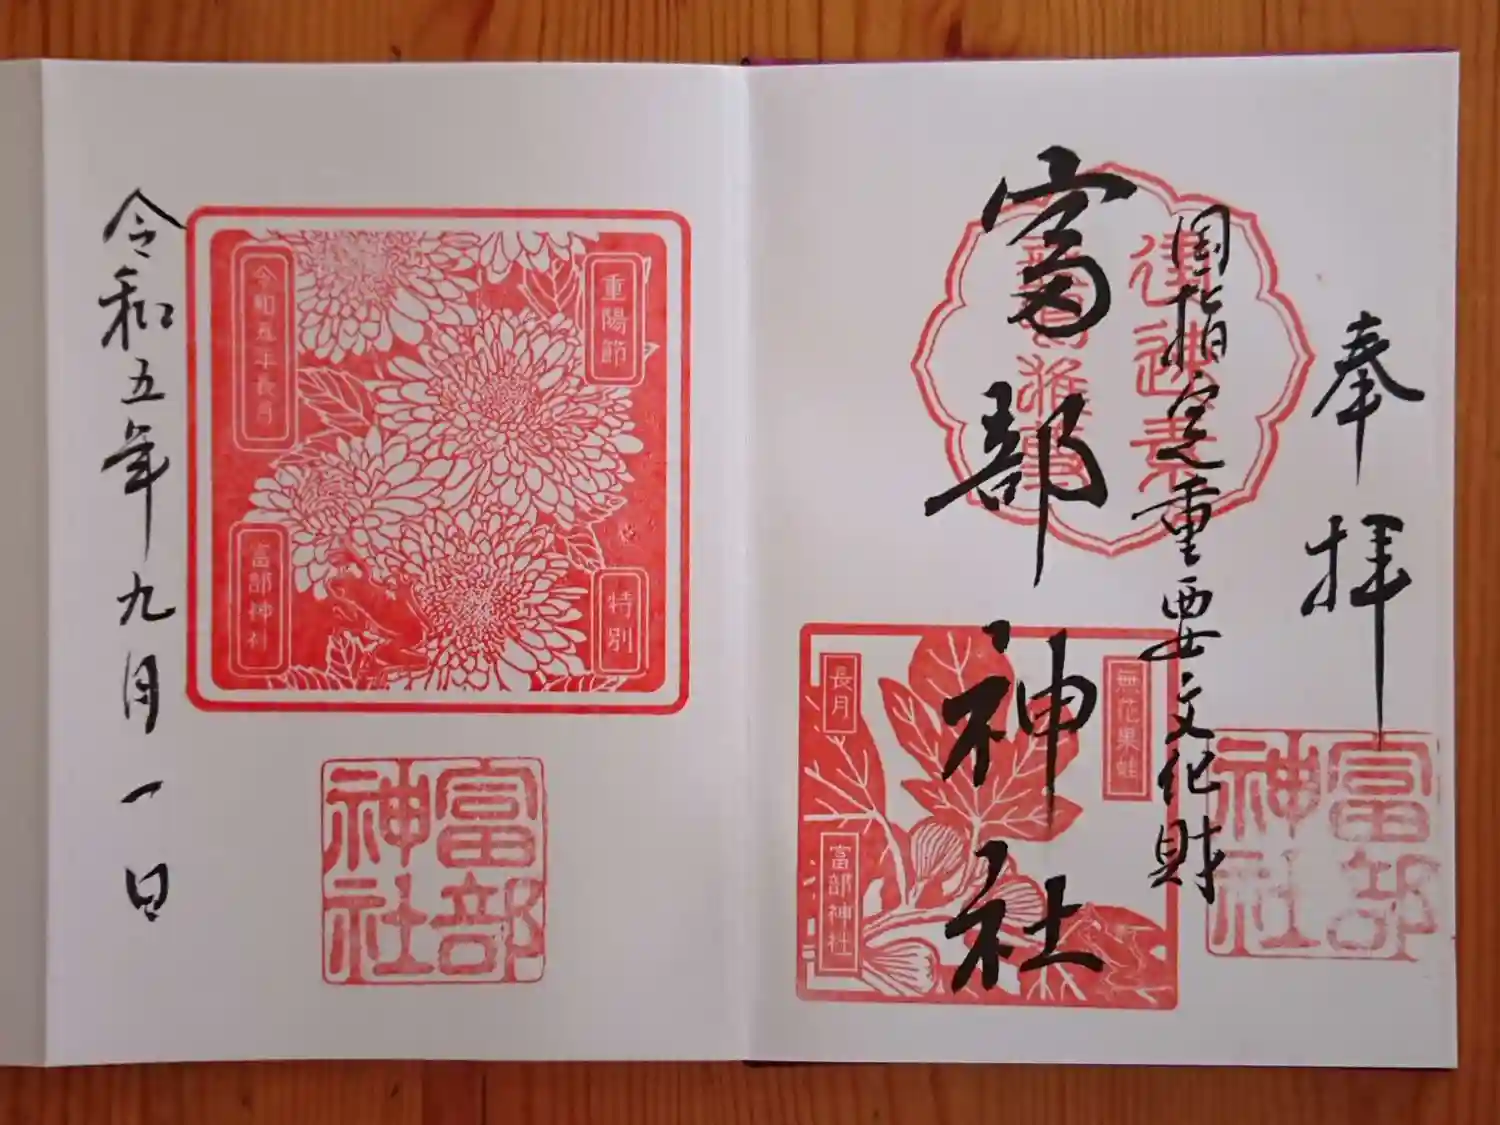 奉拝
国指定重要文化財
富部神社
富部
神社
無花果蛙
長月
富部神社
重陽節
特別
令和五年長月
富部神社
富部
神社
令和五年九月一日